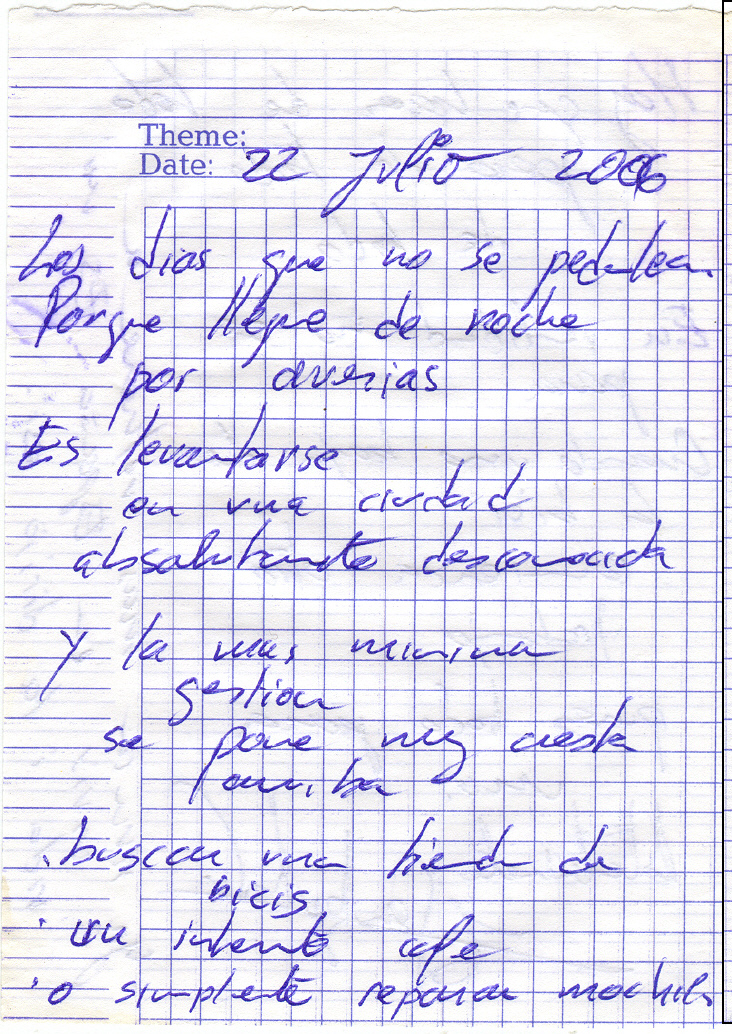 Theme:
Date: 22 Julio 2006
Los dias que no se pedalea
Porque llegue de noche
por averias
Es levantarse
en una ciudad
absolutamente desconocida
y la mas minima
gestion
se pone muy cuesta
arriba
. buscar una tienda de
bicis
. un internet cafe
. o simplente reparar mochila